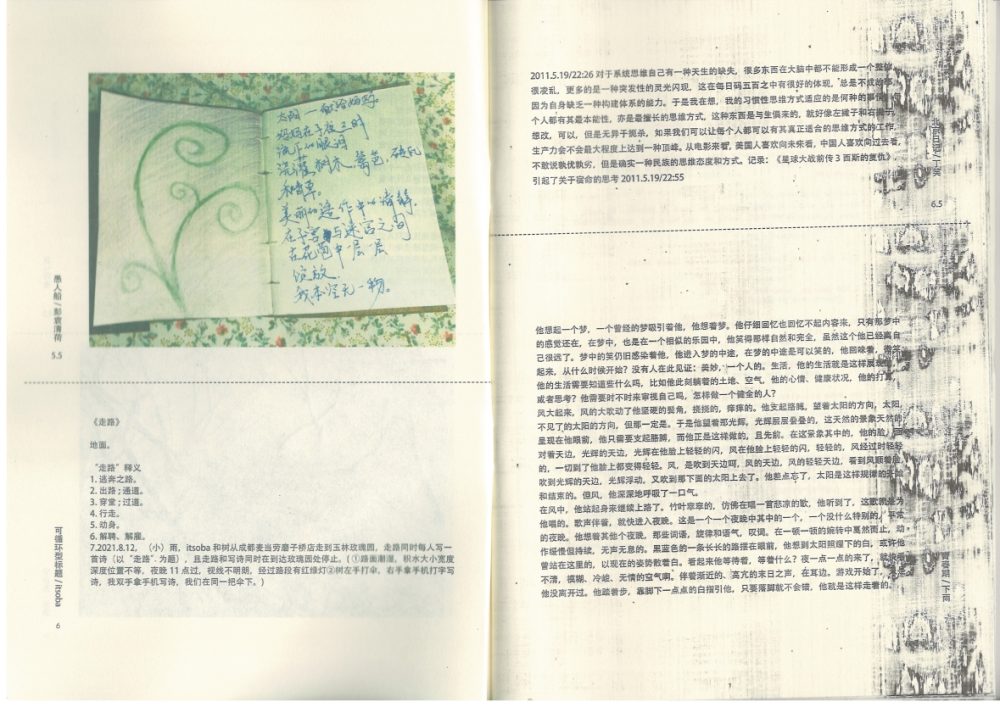 太阳一
妈妈在午夜之时
流下的眼泪
浇灌树木、篱笆、砖瓦
和青草。
美丽的造作中的清醒
在宇宙与迷宫之间
在花园中一层一层
绽放
我本空无一物。
愚人船 / 彭袁清荷
5.5
《走路》
地面。
“走路”释义
1. 逃奔之路。
2. 出路 ; 通道。
3. 穿堂 ; 过道。
4. 行走。
5. 动身。
6. 解聘、解雇。
7.2021.8.12，（小）雨，itsoba 和树从成都麦当劳磨子桥店走到玉林玫瑰园，走路同时每人写一
首诗（以“走路”为题），且走路和写诗同时在到达玫瑰园处停止。( ①路面潮湿，积水大小宽度
深度位置不等，夜晚 11 点过，视线不明朗，经过路段有红绿灯②树左手打伞，右手拿手机打字写
诗，我双手拿手机写诗，我们在同一把伞下。)
可循环型标题 / itsoba
6
2011.5.19/22:26 对于系统思维自己有一种天生的缺失，很多东西在大脑中都不能形成一个整体
很凌乱，更多的是一种突发性的灵光闪现，这在每日码五百之中有很好的体现，总是不成的
因为自身缺乏一种构建体系的能力。于是我在想，我的习惯性思维方式适应的是何种的事情
个人都有其最本能性，亦是最擅长的思维方式，这种东西是与生俱来的，就好像左撇子和右撇子
想改，可以，但是无异于扼杀，如果我们可以让每个人都可以有其真正适合的思维方式的工作，
生产力会不会最大程度上达到一种顶峰。从电影来看，美国人喜欢向未来看，中国人喜欢向过去看，
不敢说孰优孰劣，但是确实一种民族的思维态度和方式。记录：《星球大战前传 3 西斯的复仇》
引起了关于宿命的思考 2011.5.19/22:55
6.5
他想起一个梦，一个曾经的梦吸引着他，他想着梦。他仔细回忆也回忆不起内容来，只有那梦中
的感觉还在，在梦中，也是在一个相似的乐园中，他笑得那样自然和完全，虽然这个他已经离自
己很远了。梦中的笑仍旧感染着他，他进入梦的中途，在梦的中途是可以笑的，他回味着，微笑
起来，从什么时候开始？没有人在此见证：美妙，一个人的。生活，他的生活就是这样展
他的生活需要知道些什么吗，比如他此刻躺着的土地、空气，他的心情、健康状况，他的打算，
或者思考？他需要时不时来审视自己吗，怎样做一个健全的人？
风大起来，风的大吹动了他坚硬的鬓角，挠挠的，痒痒的。他支起胳膊，望着太阳的方向，太阳
不见了的太阳的方向，但那一定是。于是他望着那光辉，光辉层层叠叠的，这天然的景象天然的
呈现在他眼前，他只需要支起胳膊，而他正是这样做的，且先前。在这景象其中的，他的脸，
对着天边，光辉的天边，光辉在他脸上轻轻的闪，风在他脸上轻轻的闪，轻轻的，风经过时轻轻
的，一切到了他脸上都变得轻轻。风，是吹到天边呵，风的天边，风的轻轻天边，看到风顺着
吹到光辉的天边，光辉浮动，又吹到那下面的太阳上去了。他差点忘了，太阳是这样规律的开始
和结束的。但风，他深深地呼吸了一口气。
在风中，他站起身来继续上路了。竹叶窣窣的，仿佛在唱一首悲凉的歌，他听到了，这歌就是为
他唱的。歌声伴着，就快进入夜晚。这是一个一个夜晚中其中的一个，一个没什么特别的，平常
的夜晚。他想着其他个夜晚，那些词语，旋律和语气，叹词。在一顿一顿的婉转中戛然而止，动
作缓慢但持续，无声无息的。黑蓝色的一条长长的路摆在眼前，他想到太阳照耀下的白，或许他
曾站在这里的，以现在的姿势散着白。看起来他等待着，等着什么？夜一点一点的来了，
不清，模糊、冷峻、无情的空气啊。伴着渐近的、高亢的末日之声，在耳边。游戏开始了，
他没离开过。他踏着步，靠脚下一点点的白指引他，只要落脚就不会错，他就是这样走着的。
青春期 / 下雨